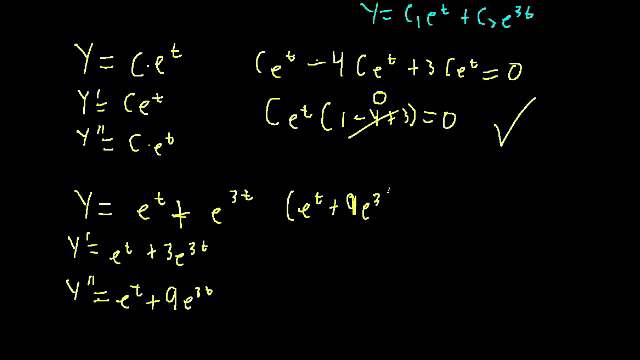 Y = C₁e^t + C₂e^3t
Y = C·e^t
Y' = Ce^t
Y'' = C·e^t
Ce^t - 4Ce^t + 3Ce^t = 0
0
Ce^t (1 - 4 + 3) = 0 ✓
Y = e^t + e^3t (e^t + 9e^3
Y' = e^t + 3e^3t
Y'' = e^t + 9e^3t